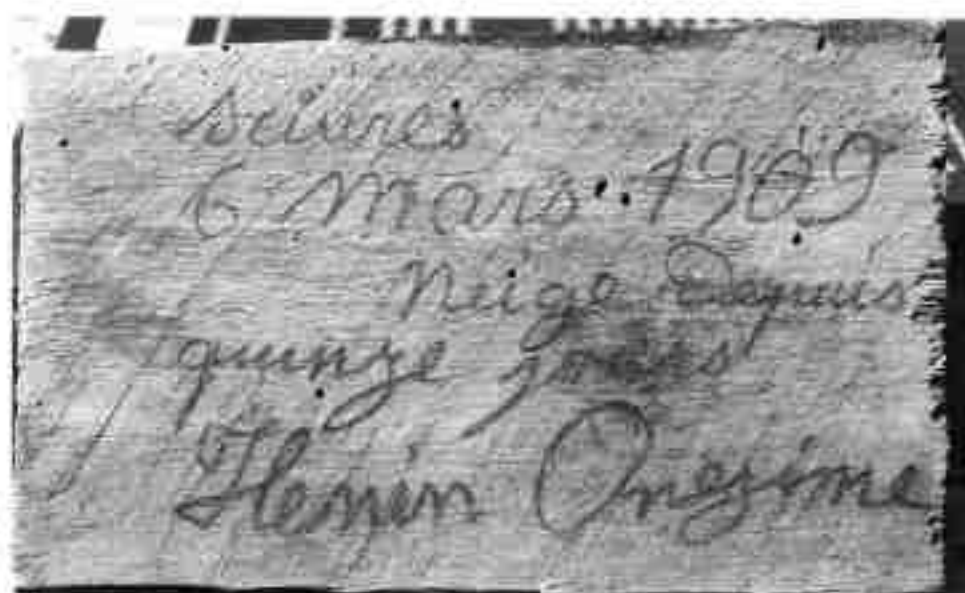 Scieurs
6 Mars 1909
Neige Depuis
quinze jours
Henin Onezime